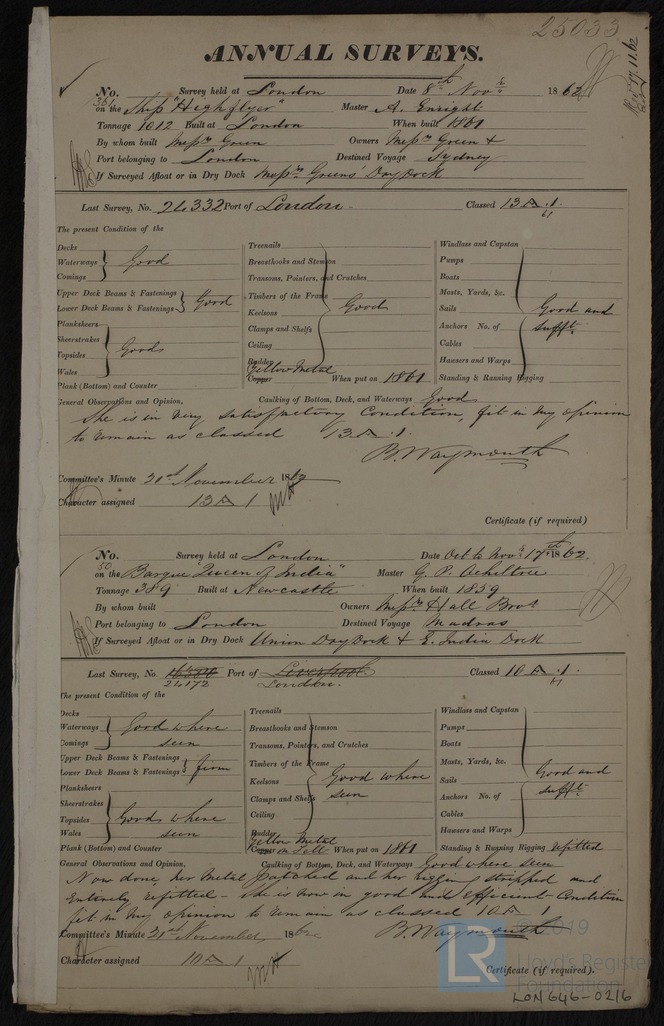 25033
ANNUAL SURVEYS.
Rec 17.11.62
No. 361 Survey held at London Date 8th Novr. 1862
on the Ship "Highflyer" Master A. Enright
Tonnage 1012 Built at London When built 1861
By whom built Messrs Green Owners Messrs Green &
Port belonging to London Destined Voyage Sydney
If Surveyed Afloat or in Dry Dock Messrs Greens' Dry Dock
Last Survey, No. 24332 Port of London. Classed 13 A.1.
61
The present Condition of the
Decks Treenails Windlass and Capstan
Waterways Good Breasthooks and Stemson Pumps
Comings Transoms, Pointers, and Crutches Boats
Upper Deck Beams & Fastenings Good Timbers of the Frame Good Masts, Yards, &c.
Lower Deck Beams & Fastenings Keelsons Sails Good and
Planksheers Clamps and Shelfs Anchors No. of sufft.
Sheerstrakes Good Ceiling Cables
Topsides Rudder Hawsers and Warps
Wales Yellow Metal
Plank (Bottom) and Counter Copper When put on 1861 Standing & Running Rigging
General Observations and Opinion, Caulking of Bottom, Deck, and Waterways Good
She is in very satisfactory Condition, fit in my opinion
to remain as classed 13 A.1.
B. Waymouth
Committee's Minute 21st November 1862
Character assigned 13 A 1
Certificate (if required)
No. 50 Survey held at London Date Oct to Novr 17th 1862.
on the Barque "Queen of India" Master G. P. Achiltree
Tonnage 389 Built at Newcastle When built 1859
By whom built Owners Messrs Hall Bros
Port belonging to London Destined Voyage Madras
If Surveyed Afloat or in Dry Dock Union Dry Dock & E. India Dock
Last Survey, No. Port of Liverpool. Classed 10 A.1.
24172 London. 61
The present Condition of the
Decks Treenails Windlass and Capstan
Waterways Good where Breasthooks and Stemson Pumps
Comings seen Transoms, Pointers, and Crutches Boats
Upper Deck Beams & Fastenings firm Timbers of the Frame Masts, Yards, &c.
Lower Deck Beams & Fastenings Keelsons Good where Sails Good and
Planksheers Clamps and Shelfs seen Anchors No. of sufft.
Sheerstrakes Ceiling Cables
Topsides Good where Rudder Hawsers and Warps
Wales seen Yellow Metal
Plank (Bottom) and Counter Copper on Felt When put on 1861 Standing & Running Rigging refitted
General Observations and Opinion, Caulking of Bottom, Deck, and Waterways Good where seen
Now done, her Metal patched and her rigging stripped and
Entirely refitted - She is now in good and Efficient Condition
fit in my opinion to remain as classed 10 A 1
Committee's Minute 21st November, 1862 B. Waymouth
Character assigned 10 A 1
Certificate (if required).
2019
LR
Lloyd's Register
Foundation
LON646-0216